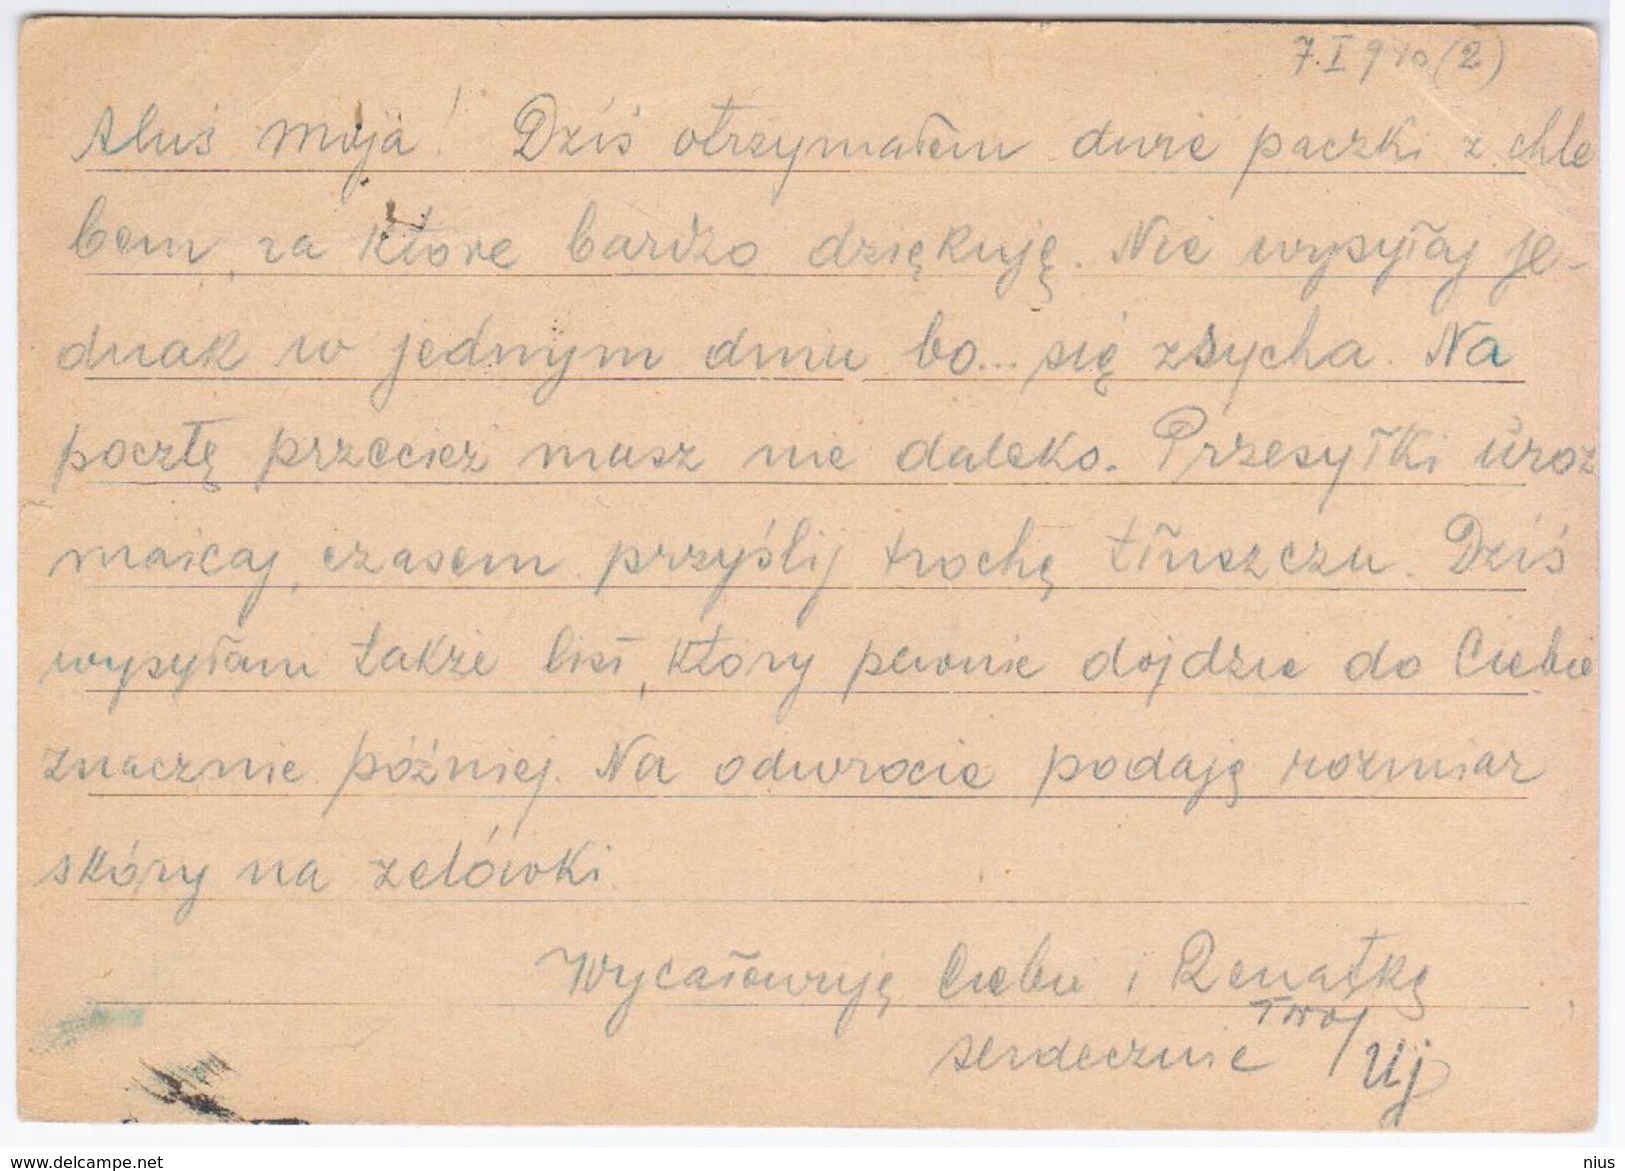 7.I 940 (2)
Aluś moja! Dziś otrzymałem dwie paczki z chle
bem, za które bardzo dziękuję. Nie wysyłaj je-
dnak w jednym dniu bo... się zsycha. Na
pocztę przecież masz nie daleko. Przesyłki uroz
maicaj, czasem przyślij trochę tłuszczu. Dziś
wysyłam także list, który pewnie dojdzie do Ciebie
znacznie później. Na odwrocie podaję rozmiar
skóry na zelówki.
Wycałowuję Ciebie i Renatkę
serdecznie Twój
www.delcampe.net
nius